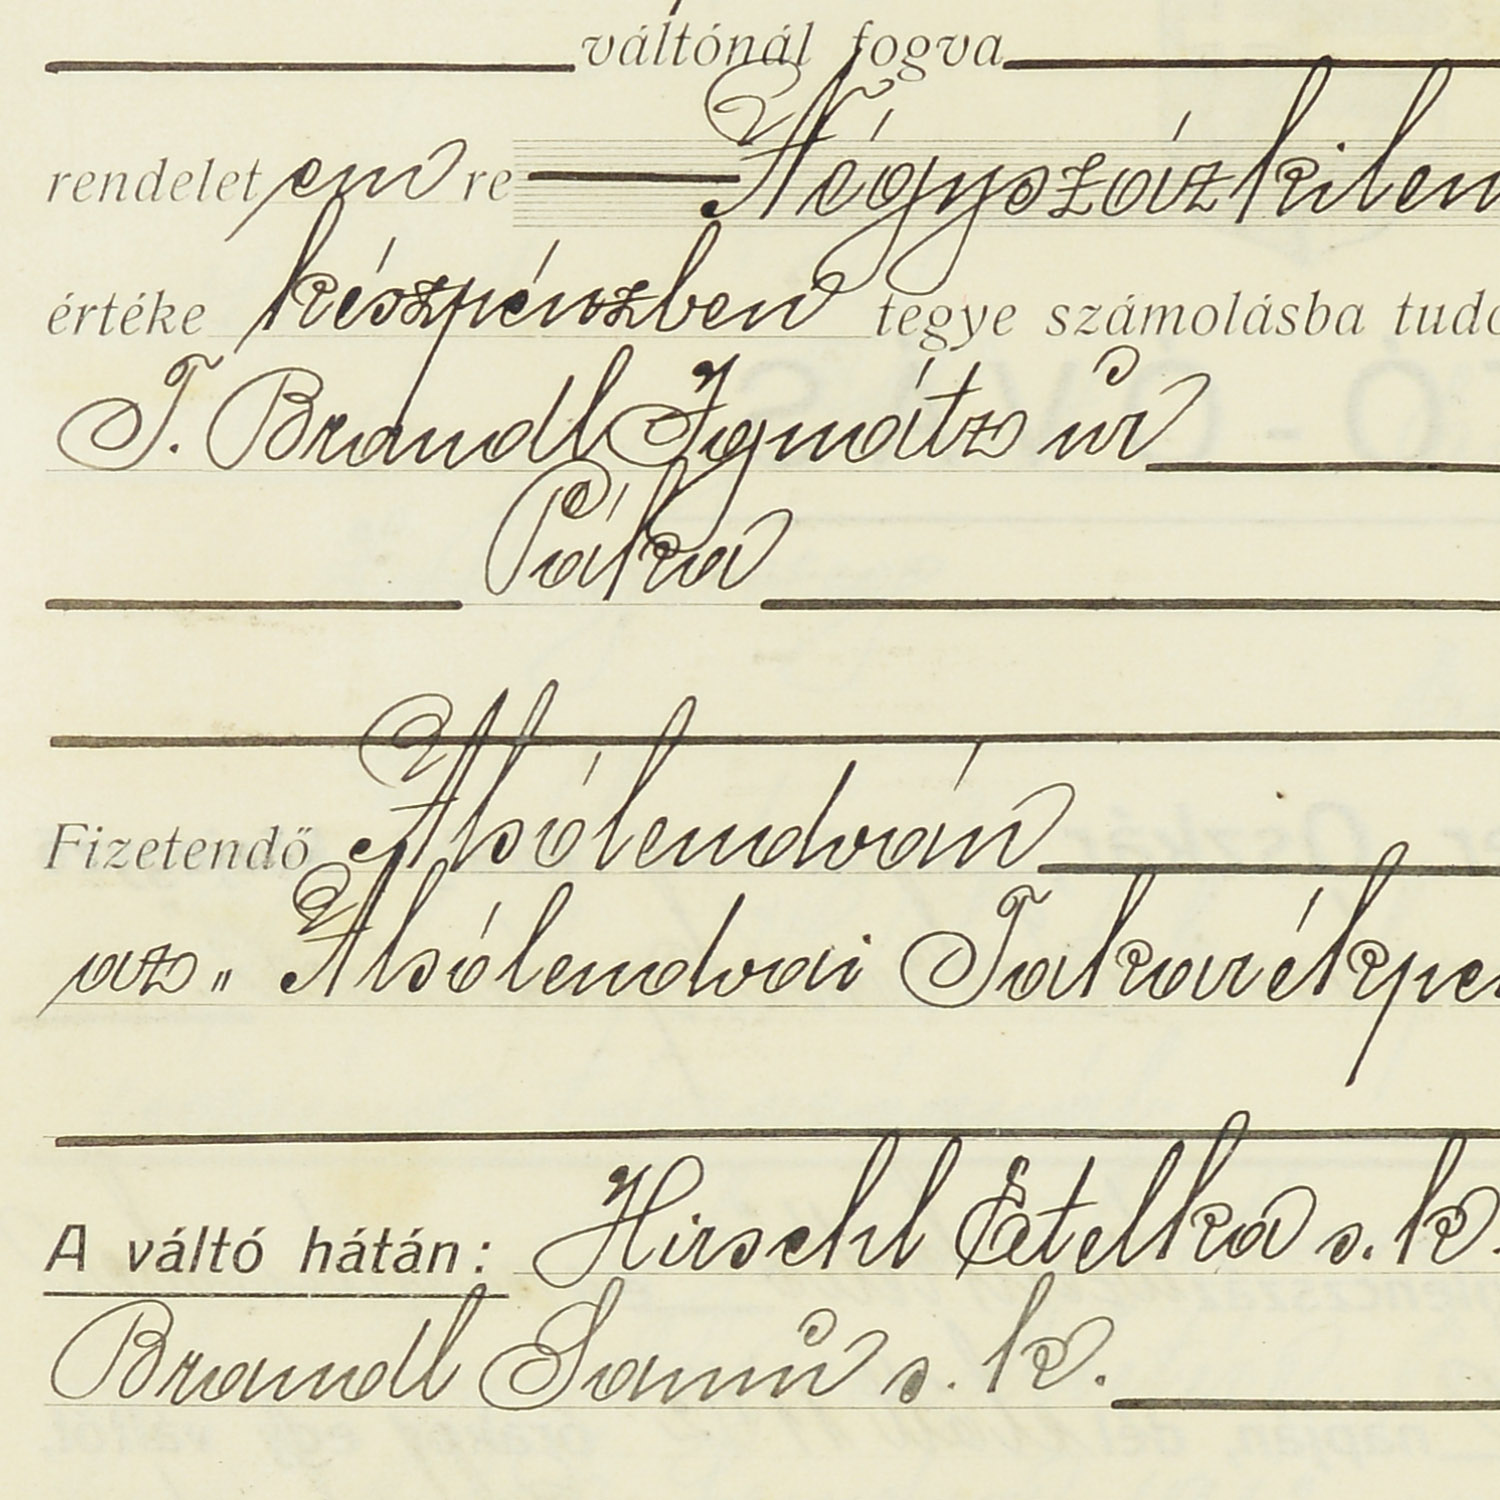 váltónál fogva
rendelet em re Négyszázkilen
értéke készpénzben tegye számolásba tudó
T. Brandl Ignátz úr
Páka
Fizetendő Alsólendván
az „ Alsólendvai Takarékpén
A váltó hátán: Hirschl Etelka s. k.
Brandl Samu s. k.